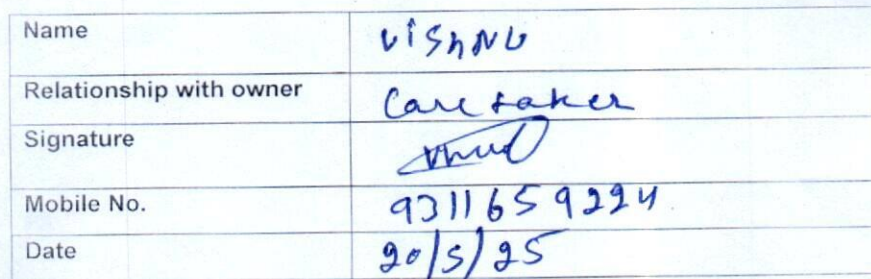 Name viShNU
Relationship with owner Care taker
Signature
Mobile No. 9311659224
Date 20/5/25